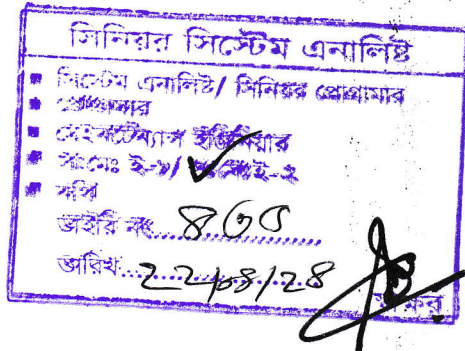 সিনিয়র সিস্টেম এনালিষ্ট
সিস্টেম এনালিষ্ট/ সিনিয়র প্রোগ্রামার
প্রোগ্রামার
মেইনটেন্যান্স ইঞ্জিনিয়ার
ই-২
নথি
ডাইরি নং
তারিখ ২২/০৪/২৪
স্বাক্ষর